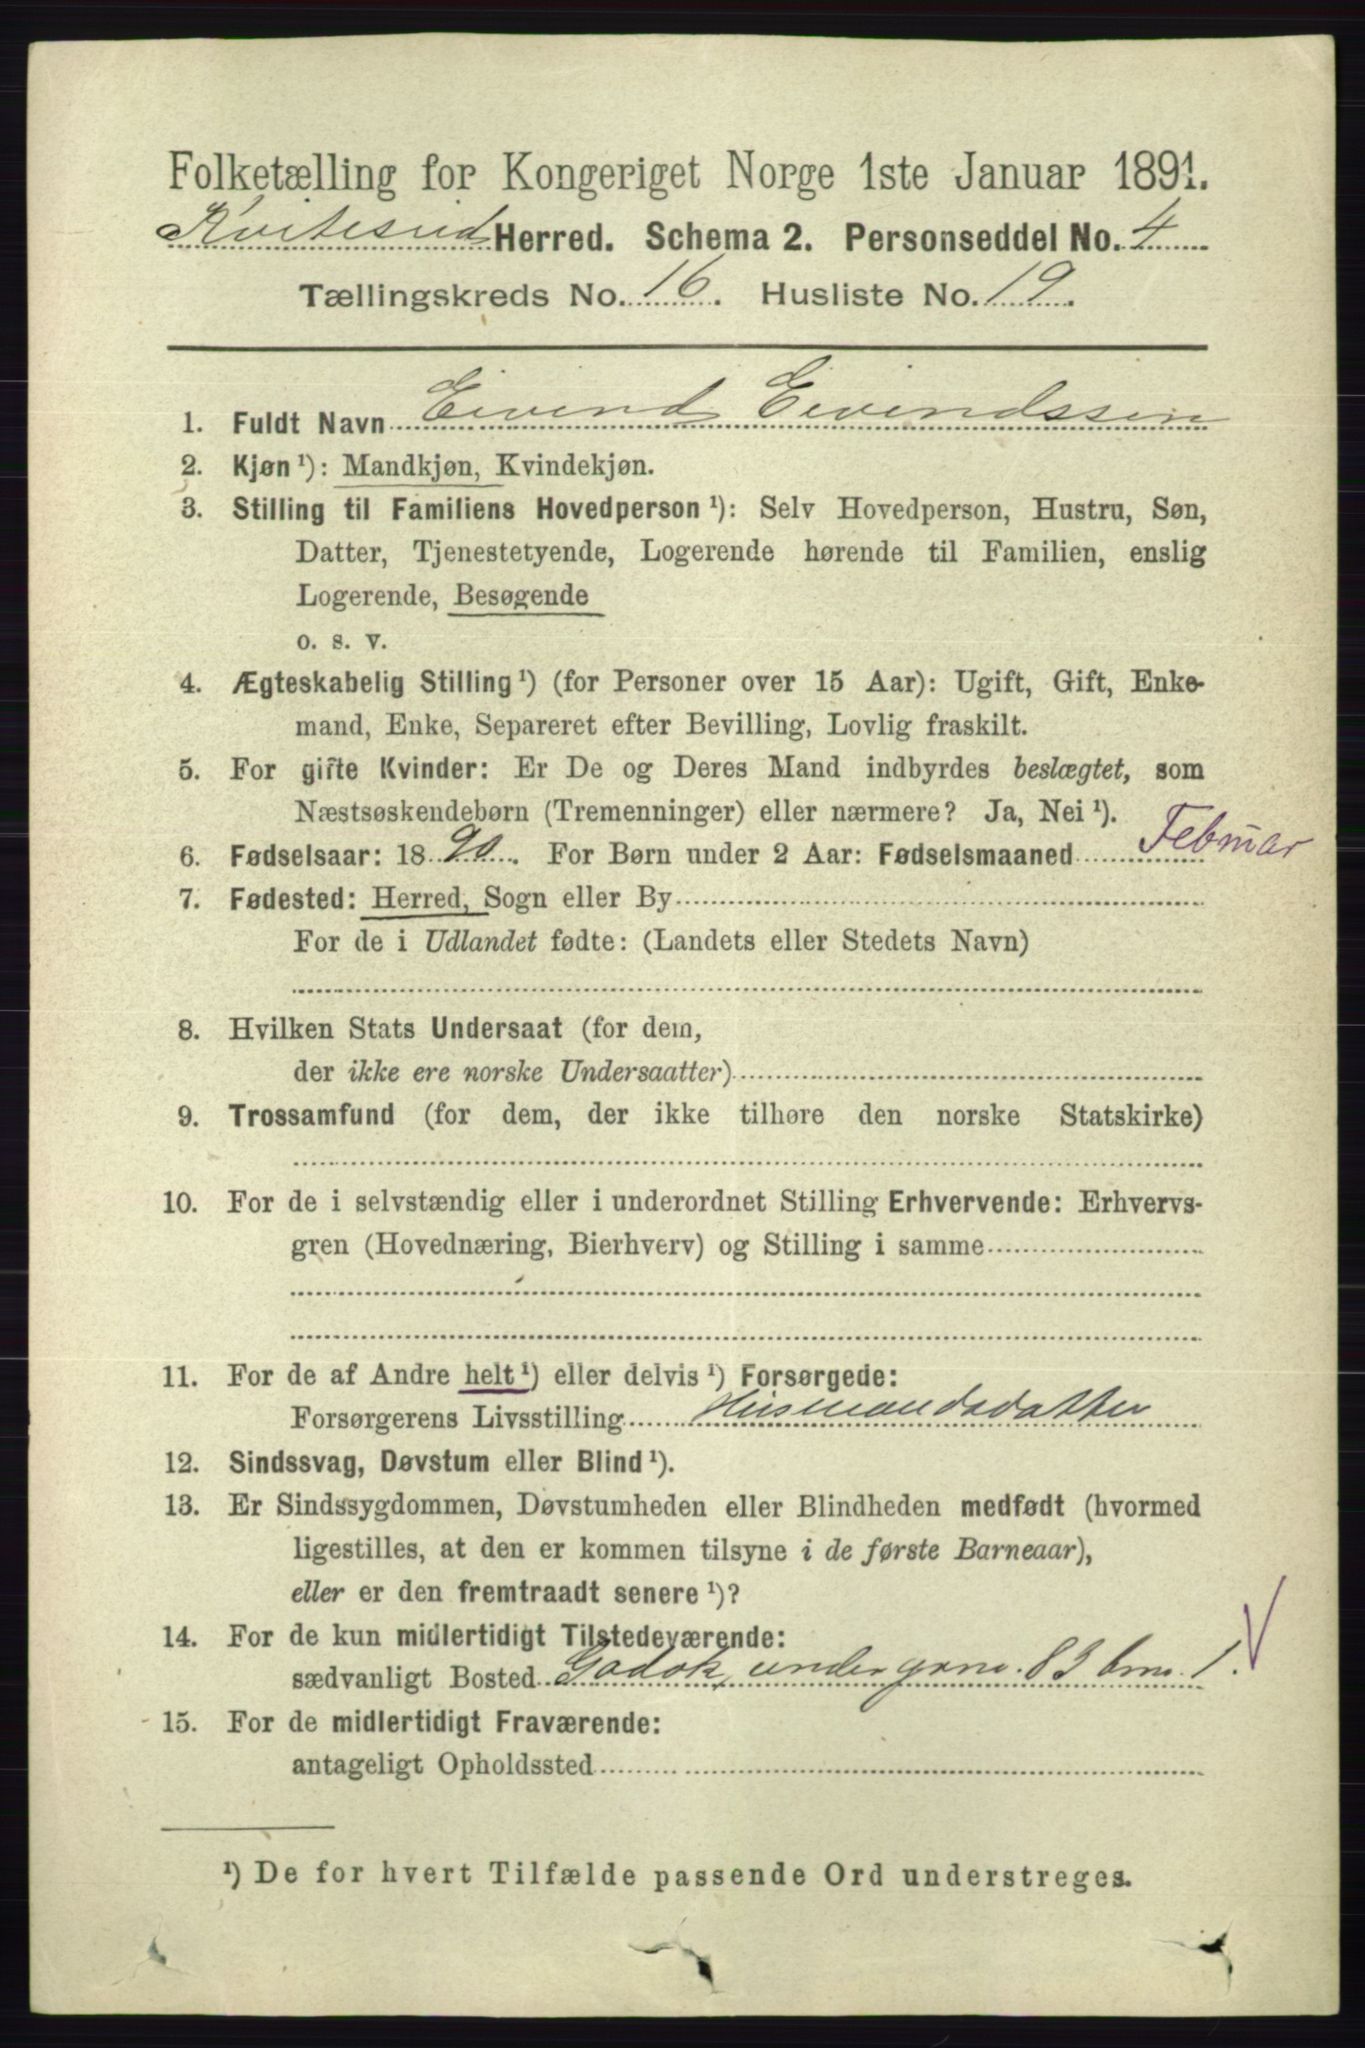 Folketælling for Kongeriget Norge 1ste Januar 1891.
Kviteseid Herred. Schema 2. Personseddel No. 4
Tællingskreds No. 16. Husliste No. 19.
1. Fuldt Navn Eivind Eivindssen
2. Kjøn ¹): Mandkjøn, Kvindekjøn.
3. Stilling til Familiens Hovedperson ¹): Selv Hovedperson, Hustru, Søn,
Datter, Tjenestetyende, Logerende hørende til Familien, enslig
Logerende, Besøgende
o. s. v.
4. Ægteskabelig Stilling ¹) (for Personer over 15 Aar): Ugift, Gift, Enke-
mand, Enke, Separeret efter Bevilling, Lovlig fraskilt.
5. For gifte Kvinder: Er De og Deres Mand indbyrdes beslægtet, som
Næstsøskendebørn (Tremenninger) eller nærmere? Ja, Nei ¹).
6. Fødselsaar: 1890. For Børn under 2 Aar: Fødselsmaaned Februar
7. Fødested: Herred, Sogn eller By
For de i Udlandet fødte: (Landets eller Stedets Navn)
8. Hvilken Stats Undersaat (for dem,
der ikke ere norske Undersaatter)
9. Trossamfund (for dem, der ikke tilhøre den norske Statskirke)
10. For de i selvstændig eller i underordnet Stilling Erhvervende: Erhvervs-
gren (Hovednæring, Bierhverv) og Stilling i samme
11. For de af Andre helt ¹) eller delvis ¹) Forsørgede:
Forsørgerens Livsstilling Husmandsdatter
12. Sindssvag, Døvstum eller Blind ¹).
13. Er Sindssygdommen, Døvstumheden eller Blindheden medfødt (hvormed
ligestilles, at den er kommen tilsyne i de første Barneaar),
eller er den fremtraadt senere ¹)?
14. For de kun midlertidigt Tilstedeværende:
sædvanligt Bosted under grno. 83 brno. 1. V
15. For de midlertidigt Fraværende:
antageligt Opholdssted
¹) De for hvert Tilfælde passende Ord understreges.